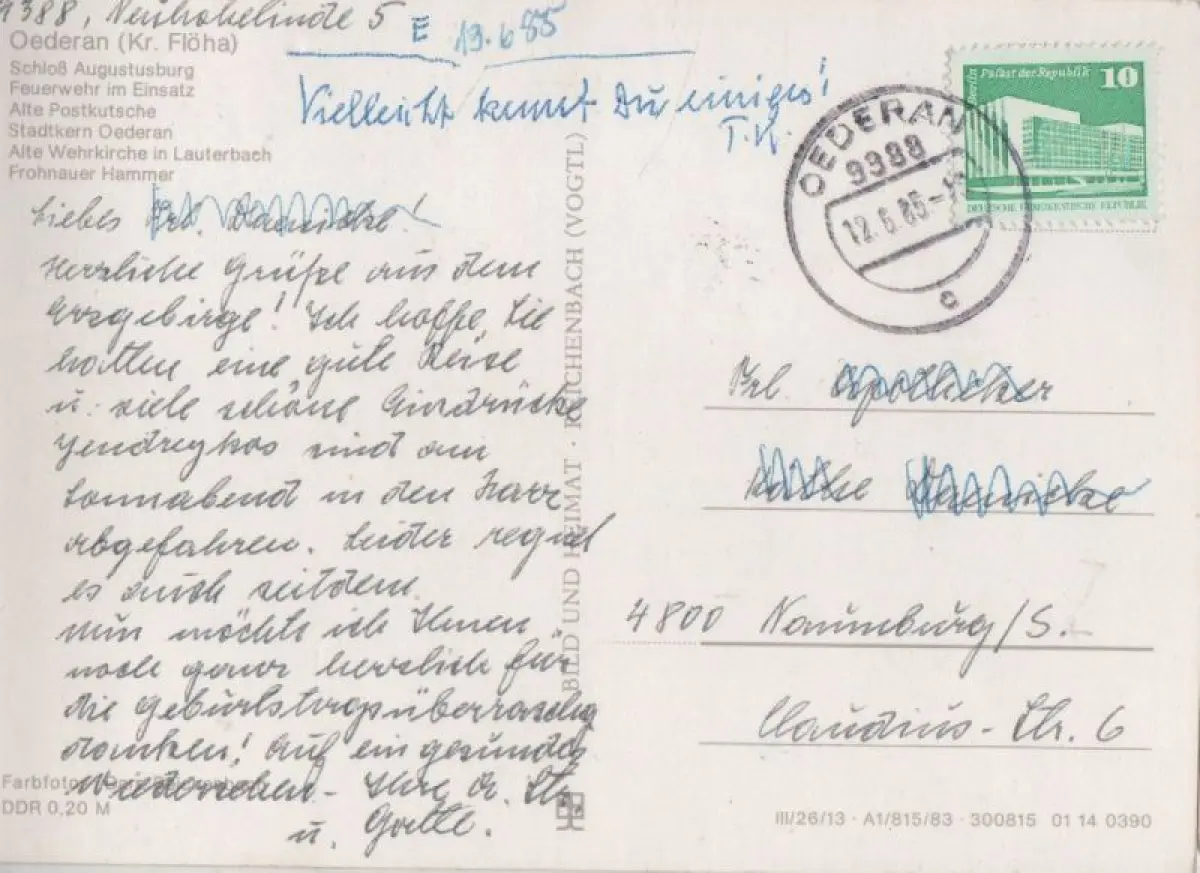 9388, Neuhohelinde 5
E 19.6.85
Oederan (Kr. Flöha)
Schloß Augustusburg
Feuerwehr im Einsatz
Alte Postkutsche
Stadtkern Oederan
Alte Wehrkirche in Lauterbach
Frohnauer Hammer
Vielleicht kennst Du einiges!
T.K.
Liebes Frl.
Herzliche Grüße aus dem
Erzgebirge! Ich hoffe, Sie
hatten eine gute Reise
u. viele schöne Eindrücke
sind am
Sonnabend in den Harz
abgefahren. Leider regnet
es auch seitdem.
Nun möchte ich Ihnen
noch ganz herzlich für
die Geburtstagsüberraschg
danken! Auf ein gesundes
Wiedersehen - Ihre
u. Gatte.
Farbfotos:
DDR 0,20 M
BILD UND HEIMAT · REICHENBACH (VOGTL)
Berlin Palast der Republik 10
DEUTSCHE DEMOKRATISCHE REPUBLIK
OEDERAN
9388
12.6.85
c
Frl. Apotheker
Käthe
4800 Naumburg/S.
Claudius-Str. 6
III/26/13 · A1/815/83 · 300815 01 14 0390